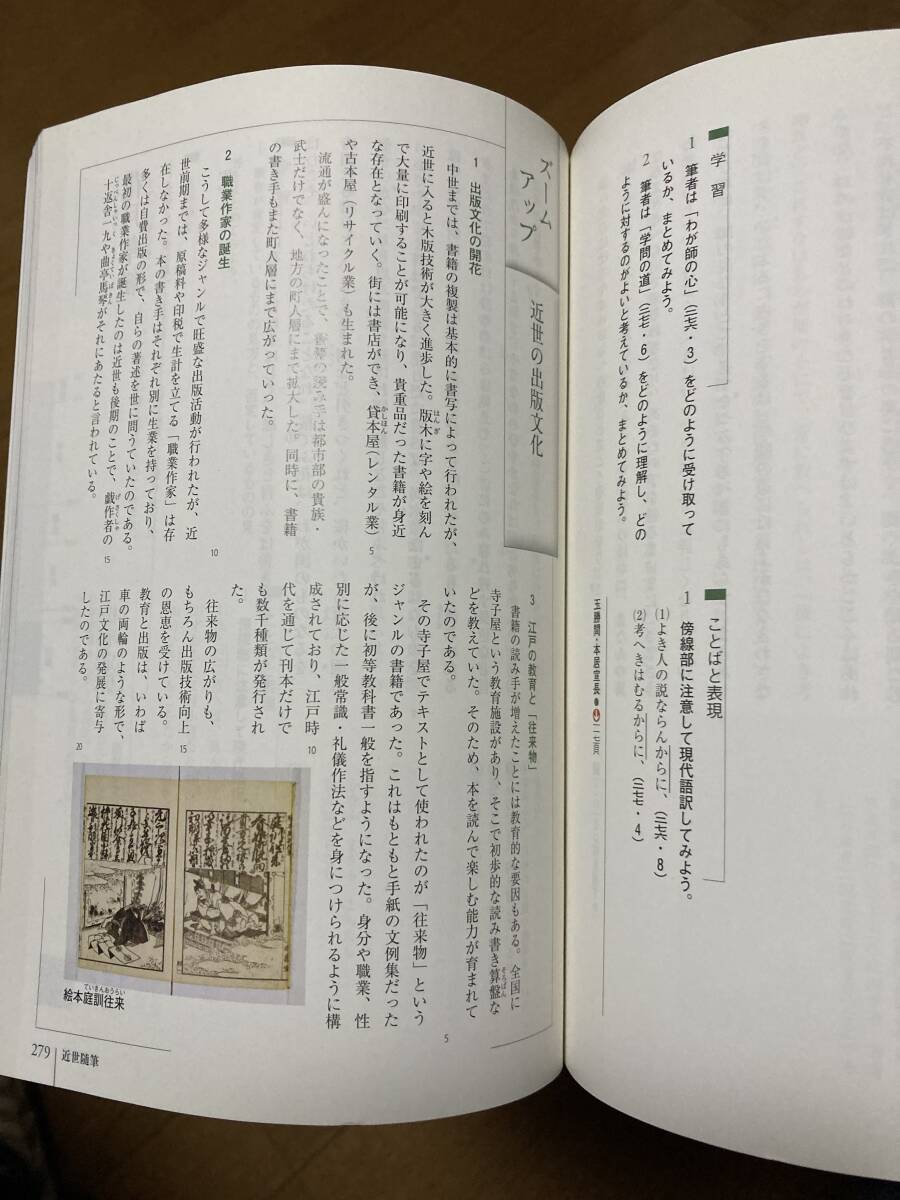 学習
1 筆者は「わが師の心」（二七六・3）をどのように受け取って
いるか、まとめてみよう。
2 筆者は「学問の道」（二七七・6）をどのように理解し、どの
ように対するのがよいと考えているか、まとめてみよう。
ことばと表現
1 傍線部に注意して現代語訳してみよう。
(1)よき人の説ならんからに、（二七六・8）
(2)考へきはむるからに、（二七七・4）
玉勝間・本居宣長●
ズーム
アップ
近世の出版文化
1 出版文化の開花
中世までは、書籍の複製は基本的に書写によって行われたが、
近世に入ると木版技術が大きく進歩した。版木に字や絵を刻ん
はんぎ
で大量に印刷することが可能になり、貴重品だった書籍が身近
な存在となっていく。街には書店ができ、貸本屋（レンタル業）
かしほん
5
や古本屋（リサイクル業）も生まれた。
流通が盛んになったことで、書籍の読み手は都市部の貴族・
武士だけでなく、地方の町人層にまで拡大した。同時に、書籍
の書き手もまた町人層にまで広がっていった。
2 職業作家の誕生
こうして多様なジャンルで旺盛な出版活動が行われたが、近
10
世前期までは、原稿料や印税で生計を立てる「職業作家」は存
在しなかった。本の書き手はそれぞれ別に生業を持っており、
多くは自費出版の形で、自らの著述を世に問うていたのである。
最初の職業作家が誕生したのは近世も後期のことで、戯作者の
げさくしゃ
15
十返舎一九や曲亭馬琴がそれにあたると言われている。
じっぺんしゃいっく
きょくていばきん
3 江戸の教育と「往来物」
書籍の読み手が増えたことには教育的な要因もある。全国に
寺子屋という教育施設があり、そこで初歩的な読み書き算盤な
そろばん
どを教えていた。そのため、本を読んで楽しむ能力が育まれて
いたのである。
その寺子屋でテキストとして使われたのが「往来物」という
5
ジャンルの書籍であった。これはもともと手紙の文例集だった
が、後に初等教科書一般を指すようになった。身分や職業、性
別に応じた一般常識・礼儀作法などを身につけられるように構
成されており、江戸時
10
代を通じて刊本だけで
も数千種類が発行され
た。
往来物の広がりも、
もちろん出版技術向上
15
の恩恵を受けている。
教育と出版は、いわば
車の両輪のような形で、
江戸文化の発展に寄与
したのである。
20
絵本庭訓往来
ていきんおうらい
279 近世随筆